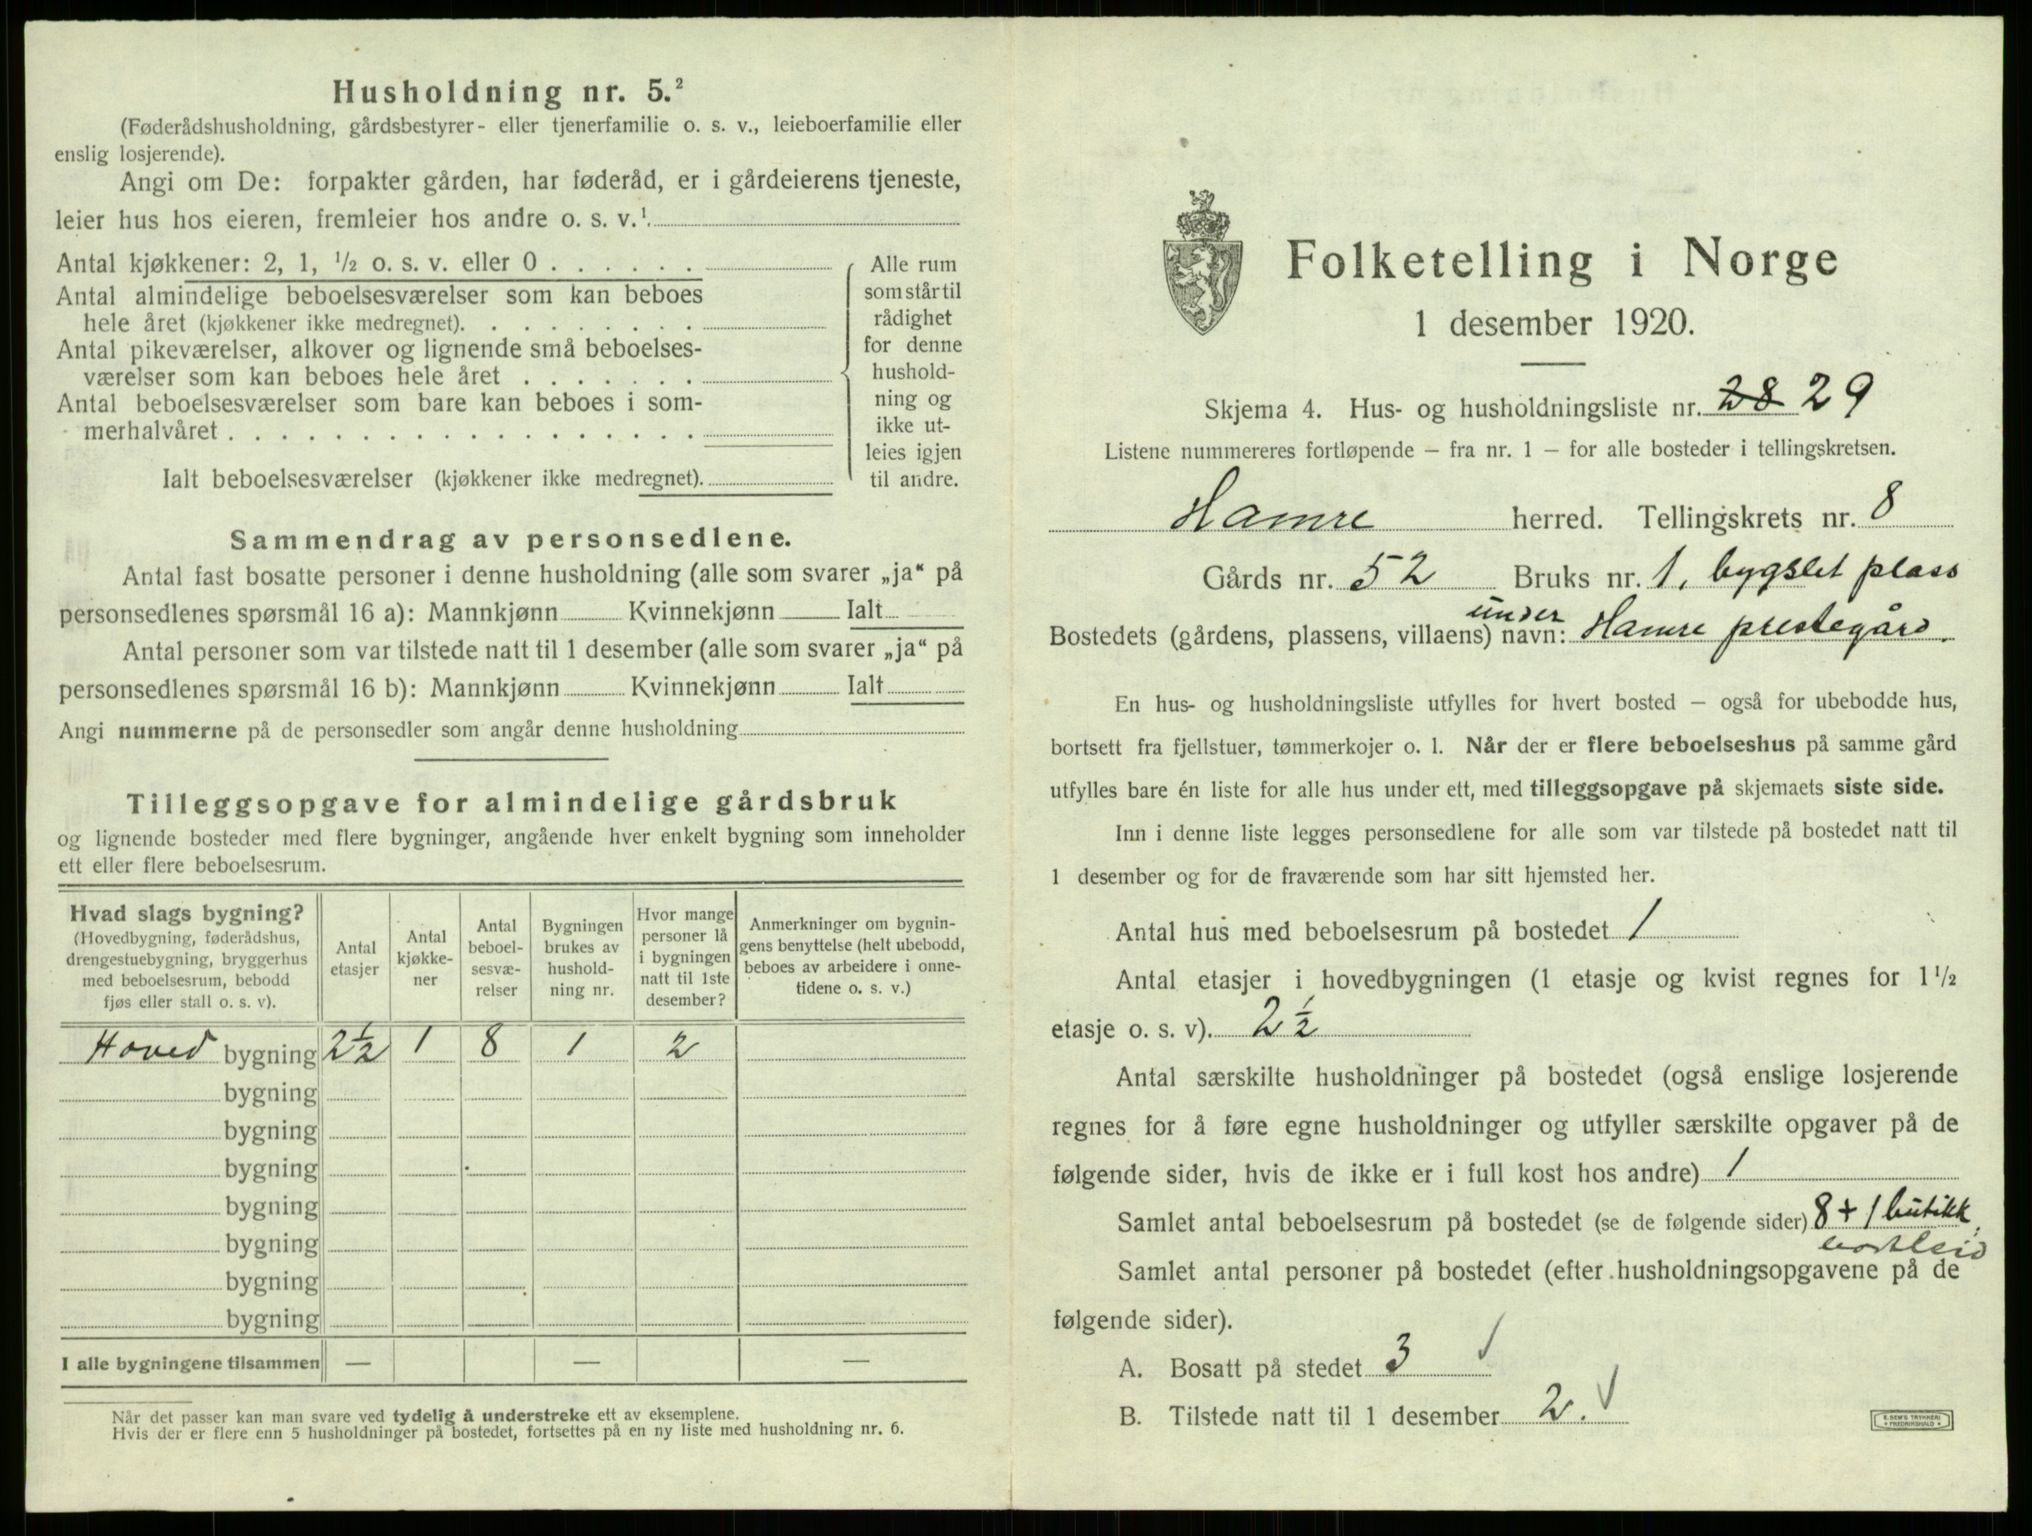 Husholdning nr. 5.²
(Føderådshusholdning, gårdsbestyrer- eller tjenerfamilie o. s. v., leieboerfamilie eller
enslig losjerende).
Angi om De: forpakter gården, har føderåd, er i gårdeierens tjeneste,
leier hus hos eieren, fremleier hos andre o. s. v.¹
Antal kjøkkener: 2, 1, ½ o. s. v. eller 0 . . . . . .
Antal almindelige beboelsesværelser som kan beboes
hele året (kjøkkener ikke medregnet). . . . . . . . .
Antal pikeværelser, alkover og lignende små beboelses-
værelser som kan beboes hele året . . . . . . .
Antal beboelsesværelser som bare kan beboes i som-
merhalvåret . . . . . . . . . . . . . . . . . .
Ialt beboelsesværelser (kjøkkener ikke medregnet).
Alle rum
som står til
rådighet
for denne
hushold-
ning og
ikke ut-
leies igjen
til andre.
Sammendrag av personsedlene.
Antal fast bosatte personer i denne husholdning (alle som svarer „ja“ på
personsedlenes spørsmål 16 a): Mannkjønn Kvinnekjønn Ialt
Antal personer som var tilstede natt til 1 desember (alle som svarer „ja“ på
personsedlenes spørsmål 16 b): Mannkjønn Kvinnekjønn Ialt
Angi nummerne på de personsedler som angår denne husholdning
Tilleggsopgave for almindelige gårdsbruk
og lignende bosteder med flere bygninger, angående hver enkelt bygning som inneholder
ett eller flere beboelsesrum.
Hvad slags bygning?
(Hovedbygning, føderådshus,
drengestuebygning, bryggerhus
med beboelsesrum, bebodd
fjøs eller stall o. s. v).
Antal
etasjer
Antal
kjøkke-
ner
Antal
beboel-
sesvæ-
relser
Bygningen
brukes av
hushold-
ning nr.
Hvor mange
personer lå
i bygningen
natt til 1ste
desember?
Anmerkninger om bygnin-
gens benyttelse (helt ubebodd,
beboes av arbeidere i onne-
tidene o. s. v.)
Hoved bygning 2½ 1 8 1 2
bygning
bygning
bygning
bygning
bygning
bygning
bygning
I alle bygningene tilsammen — — —
Når det passer kan man svare ved tydelig å understreke ett av eksemplene.
Hvis der er flere enn 5 husholdninger på bostedet, fortsettes på en ny liste med husholdning nr. 6.
Folketelling i Norge
1 desember 1920.
Skjema 4. Hus- og husholdningsliste nr. 28 29
Listene nummereres fortløpende — fra nr. 1 — for alle bosteder i tellingskretsen.
Hamre herred. Tellingskrets nr. 8
Gårds nr. 52 Bruks nr. 1, bygslet plass
under
Bostedets (gårdens, plassens, villaens) navn: Hamre prestegård.
En hus- og husholdningsliste utfylles for hvert bosted — også for ubebodde hus,
bortsett fra fjellstuer, tømmerkojer o. l. Når der er flere beboelseshus på samme gård
utfylles bare én liste for alle hus under ett, med tilleggsopgave på skjemaets siste side.
Inn i denne liste legges personsedlene for alle som var tilstede på bostedet natt til
1 desember og for de fraværende som har sitt hjemsted her.
Antal hus med beboelsesrum på bostedet 1
Antal etasjer i hovedbygningen (1 etasje og kvist regnes for 1½
etasje o. s. v). 2½
Antal særskilte husholdninger på bostedet (også enslige losjerende
regnes for å føre egne husholdninger og utfyller særskilte opgaver på de
følgende sider, hvis de ikke er i full kost hos andre) 1
Samlet antal beboelsesrum på bostedet (se de følgende sider) 8 + 1 butikk,
bortleid
Samlet antal personer på bostedet (efter husholdningsopgavene på de
følgende sider).
A. Bosatt på stedet 3
B. Tilstede natt til 1 desember 2.
E. SEM'S TRYKKERI
FREDRIKSHALD